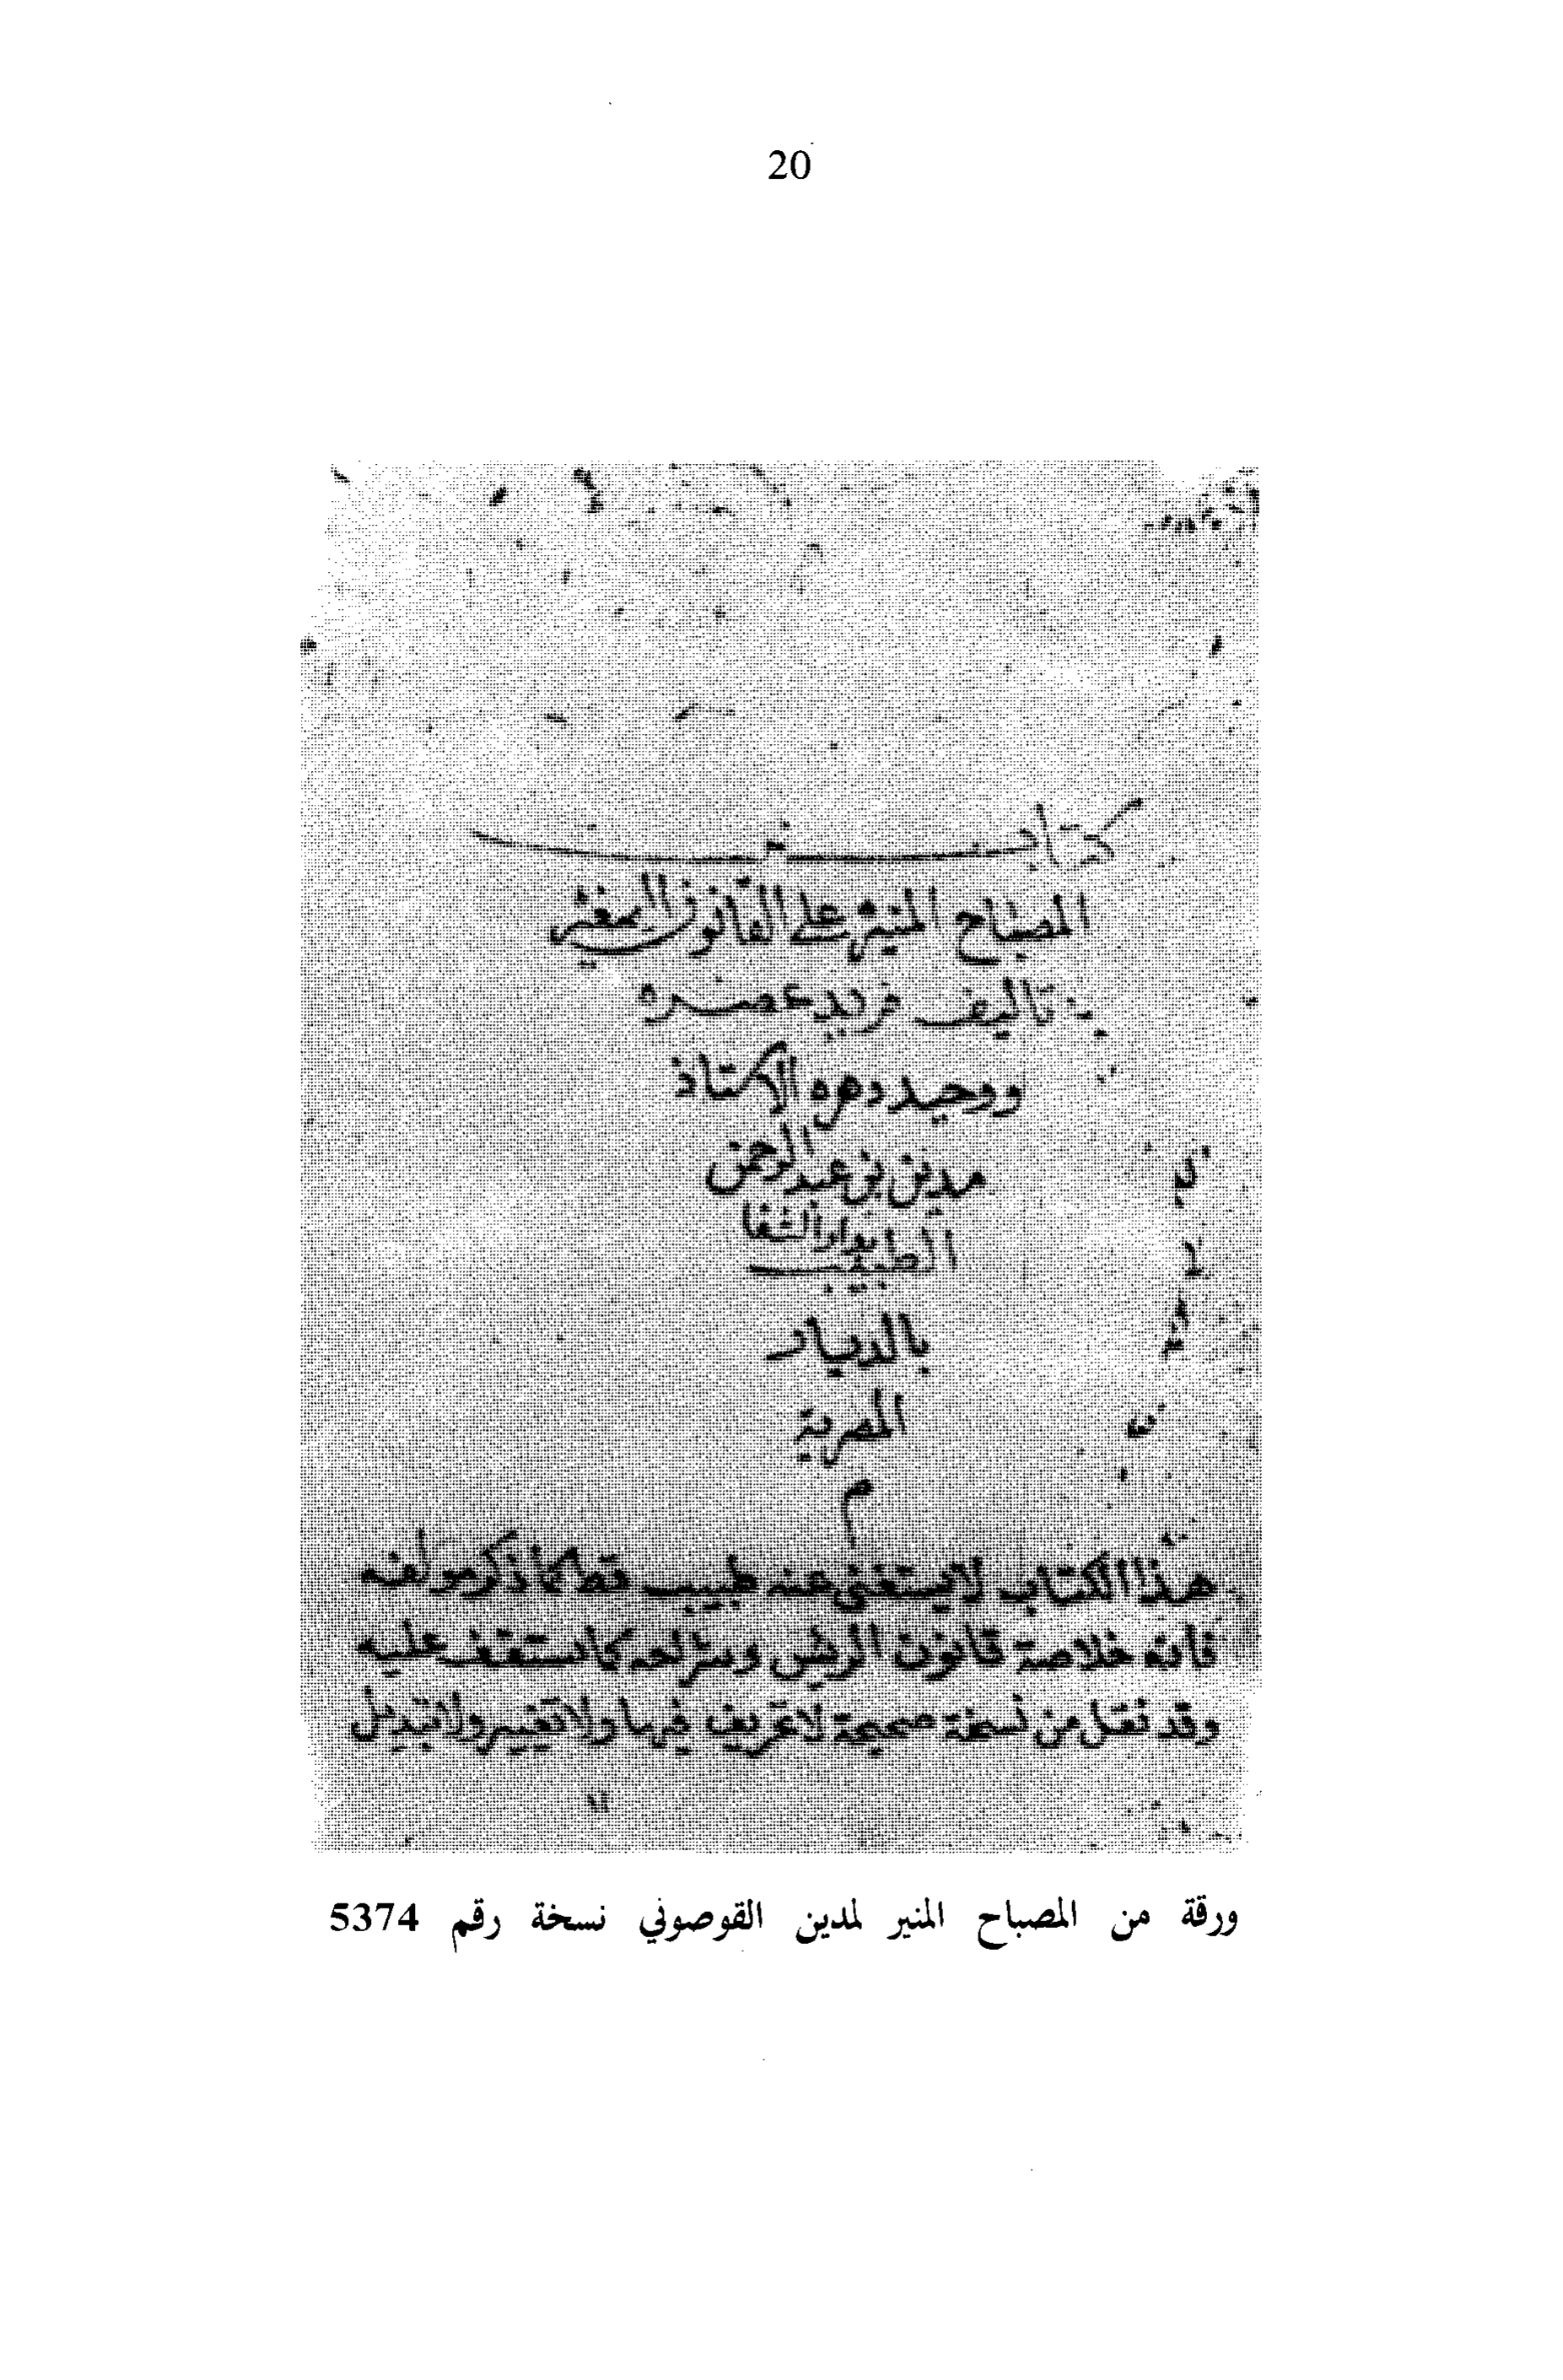 20
كتاب
المصباح المنير على القانون الصغير
تاليف فريد عصره
ووحيد دهره الاستاذ
مدين بن عبد الرحمن
الطبيب بدار الشفا
بالديار
المصرية
م
هذا الكتاب لا يستغنى عنه طبيب قط كما ذكر مولفه
فانه خلاصة قانون الريس وشراحه كما ستقف عليه
وقد نقل من نسخة صحيحة لا تحريف فيها ولا تغيير ولا تبديل
ورقة من المصباح المنير لمدين القوصوني نسخة رقم 5374